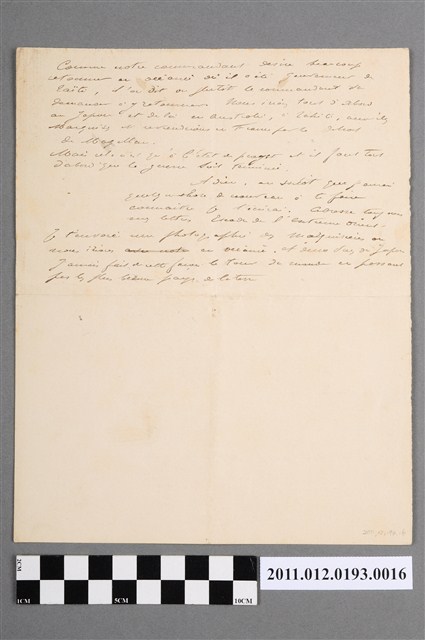 Comme notre commandant désire beaucoup
retourner en océanie où il a été gouverneur de
Taïti, l'on dit au petit le commandant de
demander à y retourner. Nous irions tout d'abord
au Japon et de là en Australie, à Tahiti, aux îles
Marquises et reviendrions en France par le détroit
de Magellan.
Mais cela n'est qu'à l'état de projet et il faut tout
d'abord que la guerre soit terminée.
Adieu, au
quelque chose de nouveau à te faire
connaître je t'écrirai. Adresse toujours
mes lettres Escadre de l'extrême orient.
Je t'enverrai une photographie des Marquisiens si
nous irions en océanie, et une du Japon
J'aurai fait de cette façon le tour du monde en passant
par les plus beaux pays de la terre
2CM
1CM
5CM
10CM
2011.012.0193.0016